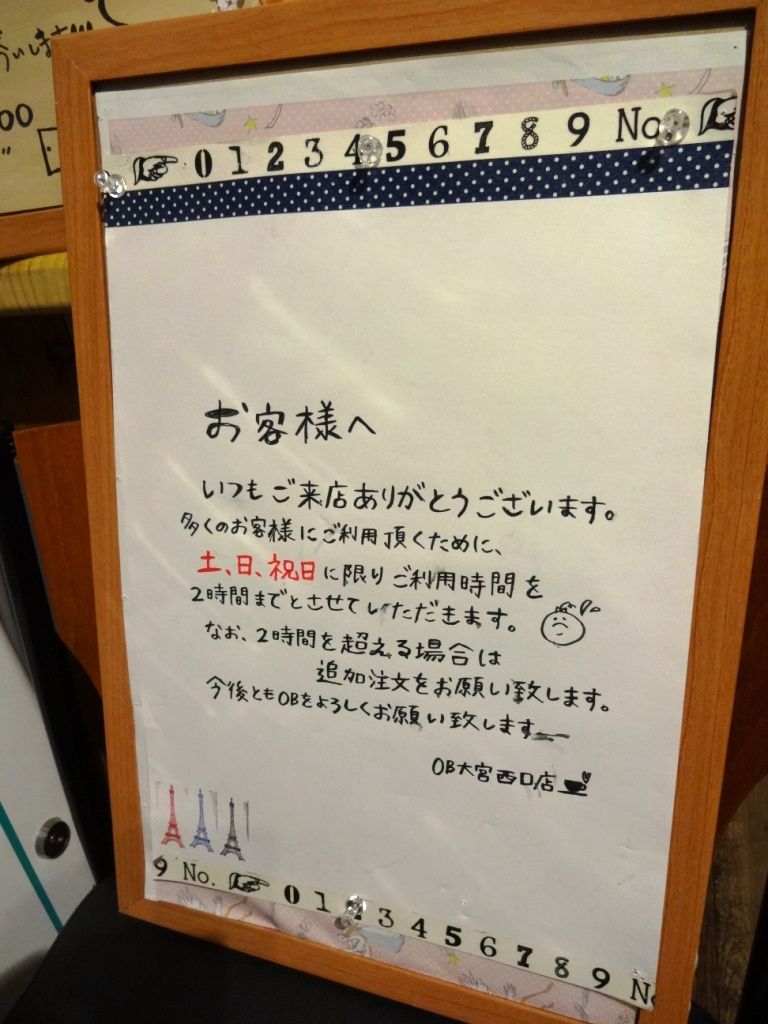 0 1 2 3 4 5 6 7 8 9 No.
お客様へ
いつもご来店ありがとうございます。
多くのお客様にご利用頂くために、
土、日、祝日に限りご利用時間を
2時間までとさせていただきます。
なお、2時間を超える場合は
追加注文をお願い致します。
今後ともOBをよろしくお願い致します
OB大宮西口店
9 No. 0 1 2 3 4 5 6 7 8 9 N